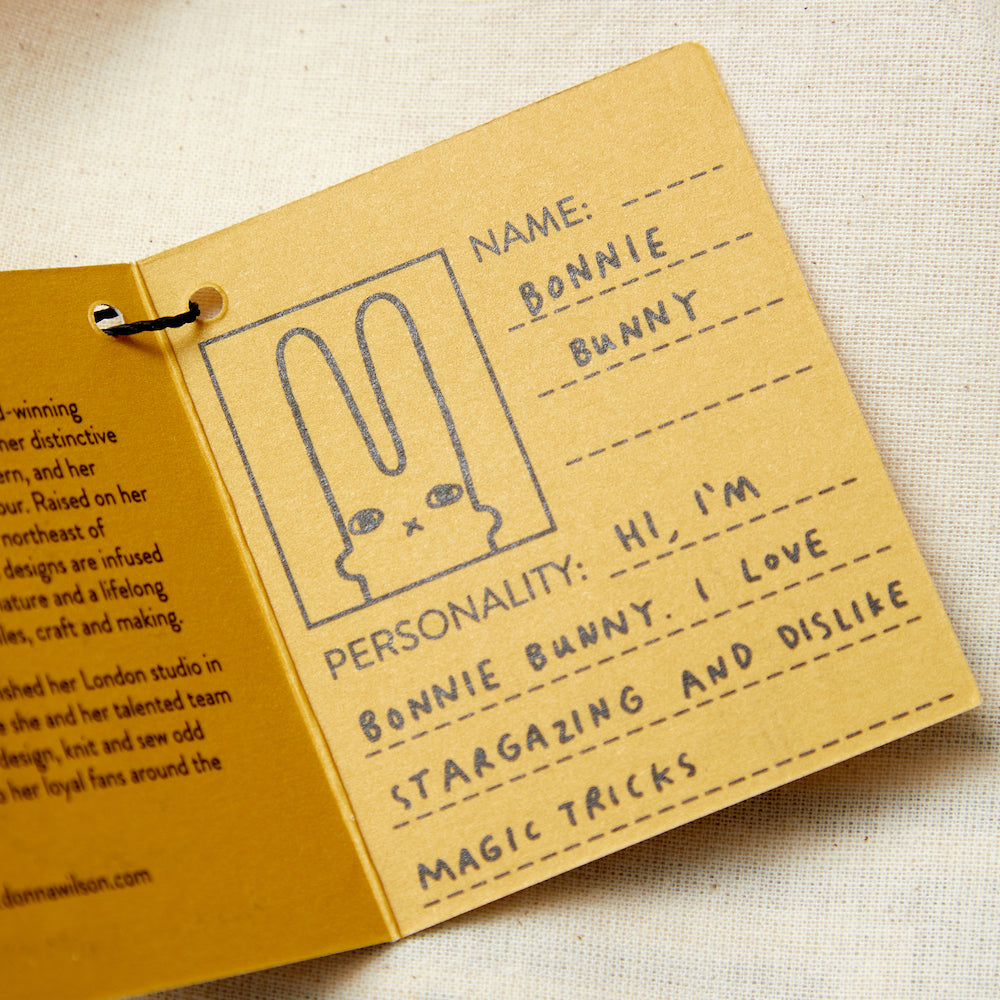 -winning
her distinctive
and her
our. Raised on her
northeast of
designs are infused
nature and a lifelong
craft and making.
ished her London studio in
she and her talented team
design, knit and sew odd
her loyal fans around the
donnawilson.com
NAME:
BONNIE
BUNNY
PERSONALITY: HI, I'M
BONNIE BUNNY. I LOVE
STARGAZING AND DISLIKE
MAGIC TRICKS